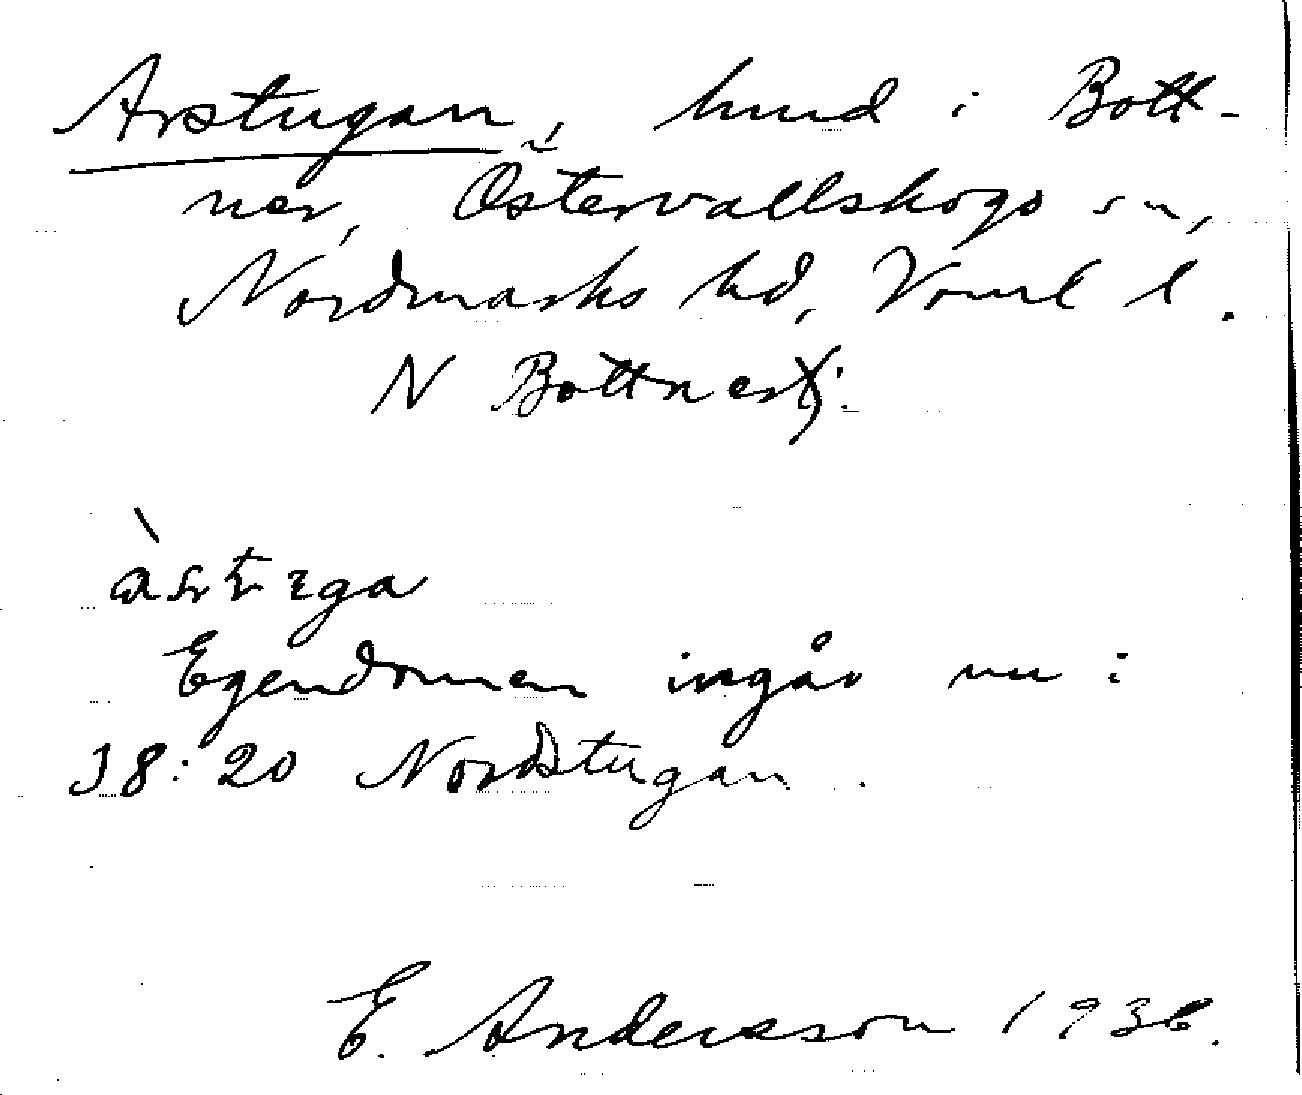 Arstugan, hmd i Bott-
ner, Östervallskogs sn,
Nordmarks hd, Vrml l.
N Bottnen:
Egendomen ingår nu i
18:20 Nordstugan.
E. Andersson 1936.